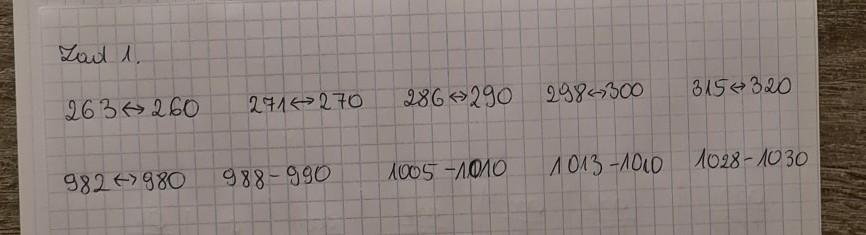 Zad 1.
263↔260 271↔270 286↔290 298↔300 315↔320
982↔980 988-990 1005-1010 1013-1010 1028-1030